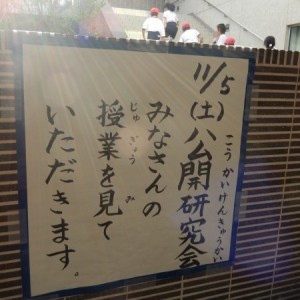 11/5
(土)公開研究会
こうかいけんきゅうかい
みなさんの
授業を見て
じゅぎょう み
いただきます。